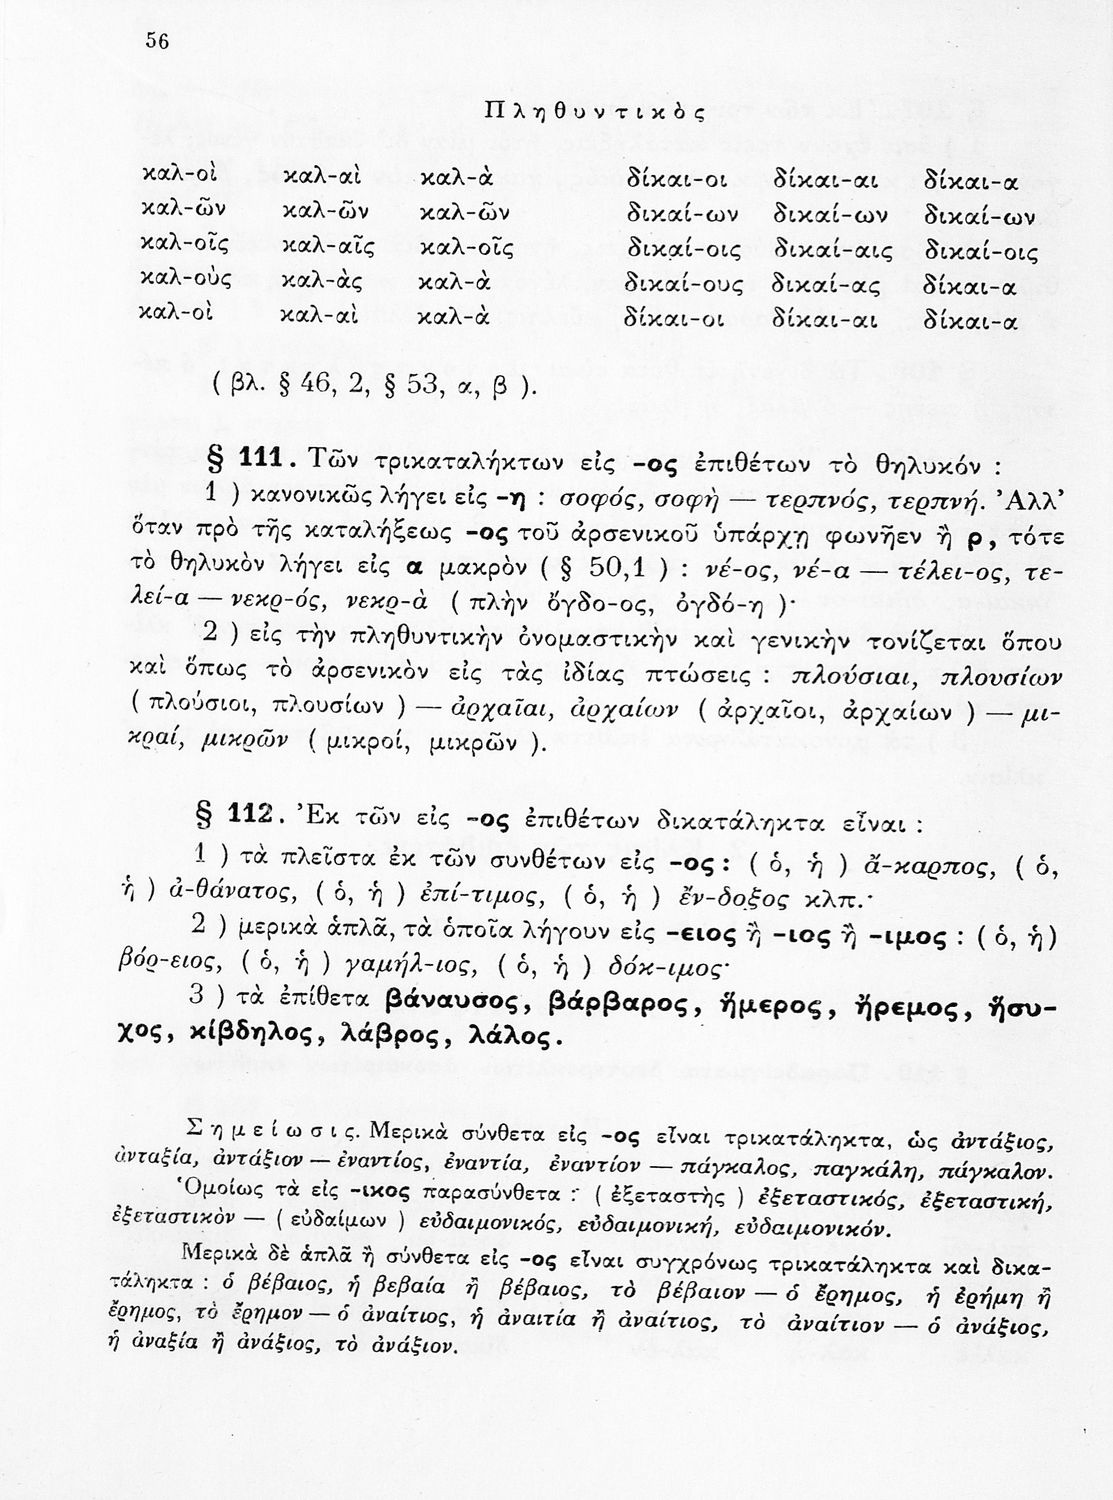 56
Πληθυντικὸς
καλ-οὶ καλ-αὶ καλ-ὰ δίκαι-οι δίκαι-αι δίκαι-α
καλ-ῶν καλ-ῶν καλ-ῶν δικαί-ων δικαί-ων δικαί-ων
καλ-οῖς καλ-αῖς καλ-οῖς δικαί-οις δικαί-αις δικαί-οις
καλ-οὺς καλ-ὰς καλ-ὰ δικαί-ους δικαί-ας δίκαι-α
καλ-οὶ καλ-αὶ καλ-ὰ δίκαι-οι δίκαι-αι δίκαι-α
( βλ. § 46, 2, § 53, α, β ).
§ 111. Τῶν τρικαταλήκτων εἰς -ος ἐπιθέτων τὸ θηλυκόν :
1 ) κανονικῶς λήγει εἰς -η : σοφός, σοφὴ — τερπνός, τερπνή. Ἀλλ’
ὅταν πρὸ τῆς καταλήξεως -ος τοῦ ἀρσενικοῦ ὑπάρχῃ φωνῆεν ἢ ρ, τότε
τὸ θηλυκὸν λήγει εἰς α μακρὸν ( § 50,1 ) : νέ-ος, νέ-α — τέλει-ος, τε-
λεί-α — νεκρ-ός, νεκρ-ὰ ( πλὴν ὄγδο-ος, ὀγδό-η )·
2 ) εἰς τὴν πληθυντικὴν ὀνομαστικὴν καὶ γενικὴν τονίζεται ὅπου
καὶ ὅπως τὸ ἀρσενικὸν εἰς τὰς ἰδίας πτώσεις : πλούσιαι, πλουσίων
( πλούσιοι, πλουσίων ) — ἀρχαῖαι, ἀρχαίων ( ἀρχαῖοι, ἀρχαίων ) — μι-
κραί, μικρῶν ( μικροί, μικρῶν ).
§ 112. Ἐκ τῶν εἰς -ος ἐπιθέτων δικατάληκτα εἶναι :
1 ) τὰ πλεῖστα ἐκ τῶν συνθέτων εἰς -ος : ( ὁ, ἡ ) ἄ-καρπος, ( ὁ,
ἡ ) ἀ-θάνατος, ( ὁ, ἡ ) ἐπί-τιμος, ( ὁ, ἡ ) ἔν-δοξος κλπ.·
2 ) μερικὰ ἁπλᾶ, τὰ ὁποῖα λήγουν εἰς -ειος ἢ -ιος ἢ -ιμος : ( ὁ, ἡ )
βόρ-ειος, ( ὁ, ἡ ) γαμήλ-ιος, ( ὁ, ἡ ) δόκ-ιμος·
3 ) τὰ ἐπίθετα βάναυσος, βάρβαρος, ἥμερος, ἤρεμος, ἥσυ-
χος, κίβδηλος, λάβρος, λάλος.
Σημείωσις. Μερικὰ σύνθετα εἰς -ος εἶναι τρικατάληκτα, ὡς ἀντάξιος,
ἀνταξία, ἀντάξιον — ἐναντίος, ἐναντία, ἐναντίον — πάγκαλος, παγκάλη, πάγκαλον.
Ὁμοίως τὰ εἰς -ικος παρασύνθετα : ( ἐξεταστὴς ) ἐξεταστικός, ἐξεταστική,
ἐξεταστικὸν — ( εὐδαίμων ) εὐδαιμονικός, εὐδαιμονική, εὐδαιμονικόν.
Μερικὰ δὲ ἁπλᾶ ἢ σύνθετα εἰς -ος εἶναι συγχρόνως τρικατάληκτα καὶ δικα-
τάληκτα : ὁ βέβαιος, ἡ βεβαία ἢ βέβαιος, τὸ βέβαιον — ὁ ἔρημος, ἡ ἐρήμη ἢ
ἔρημος, τὸ ἔρημον — ὁ ἀναίτιος, ἡ ἀναιτία ἢ ἀναίτιος, τὸ ἀναίτιον — ὁ ἀνάξιος,
ἡ ἀναξία ἢ ἀνάξιος, τὸ ἀνάξιον.